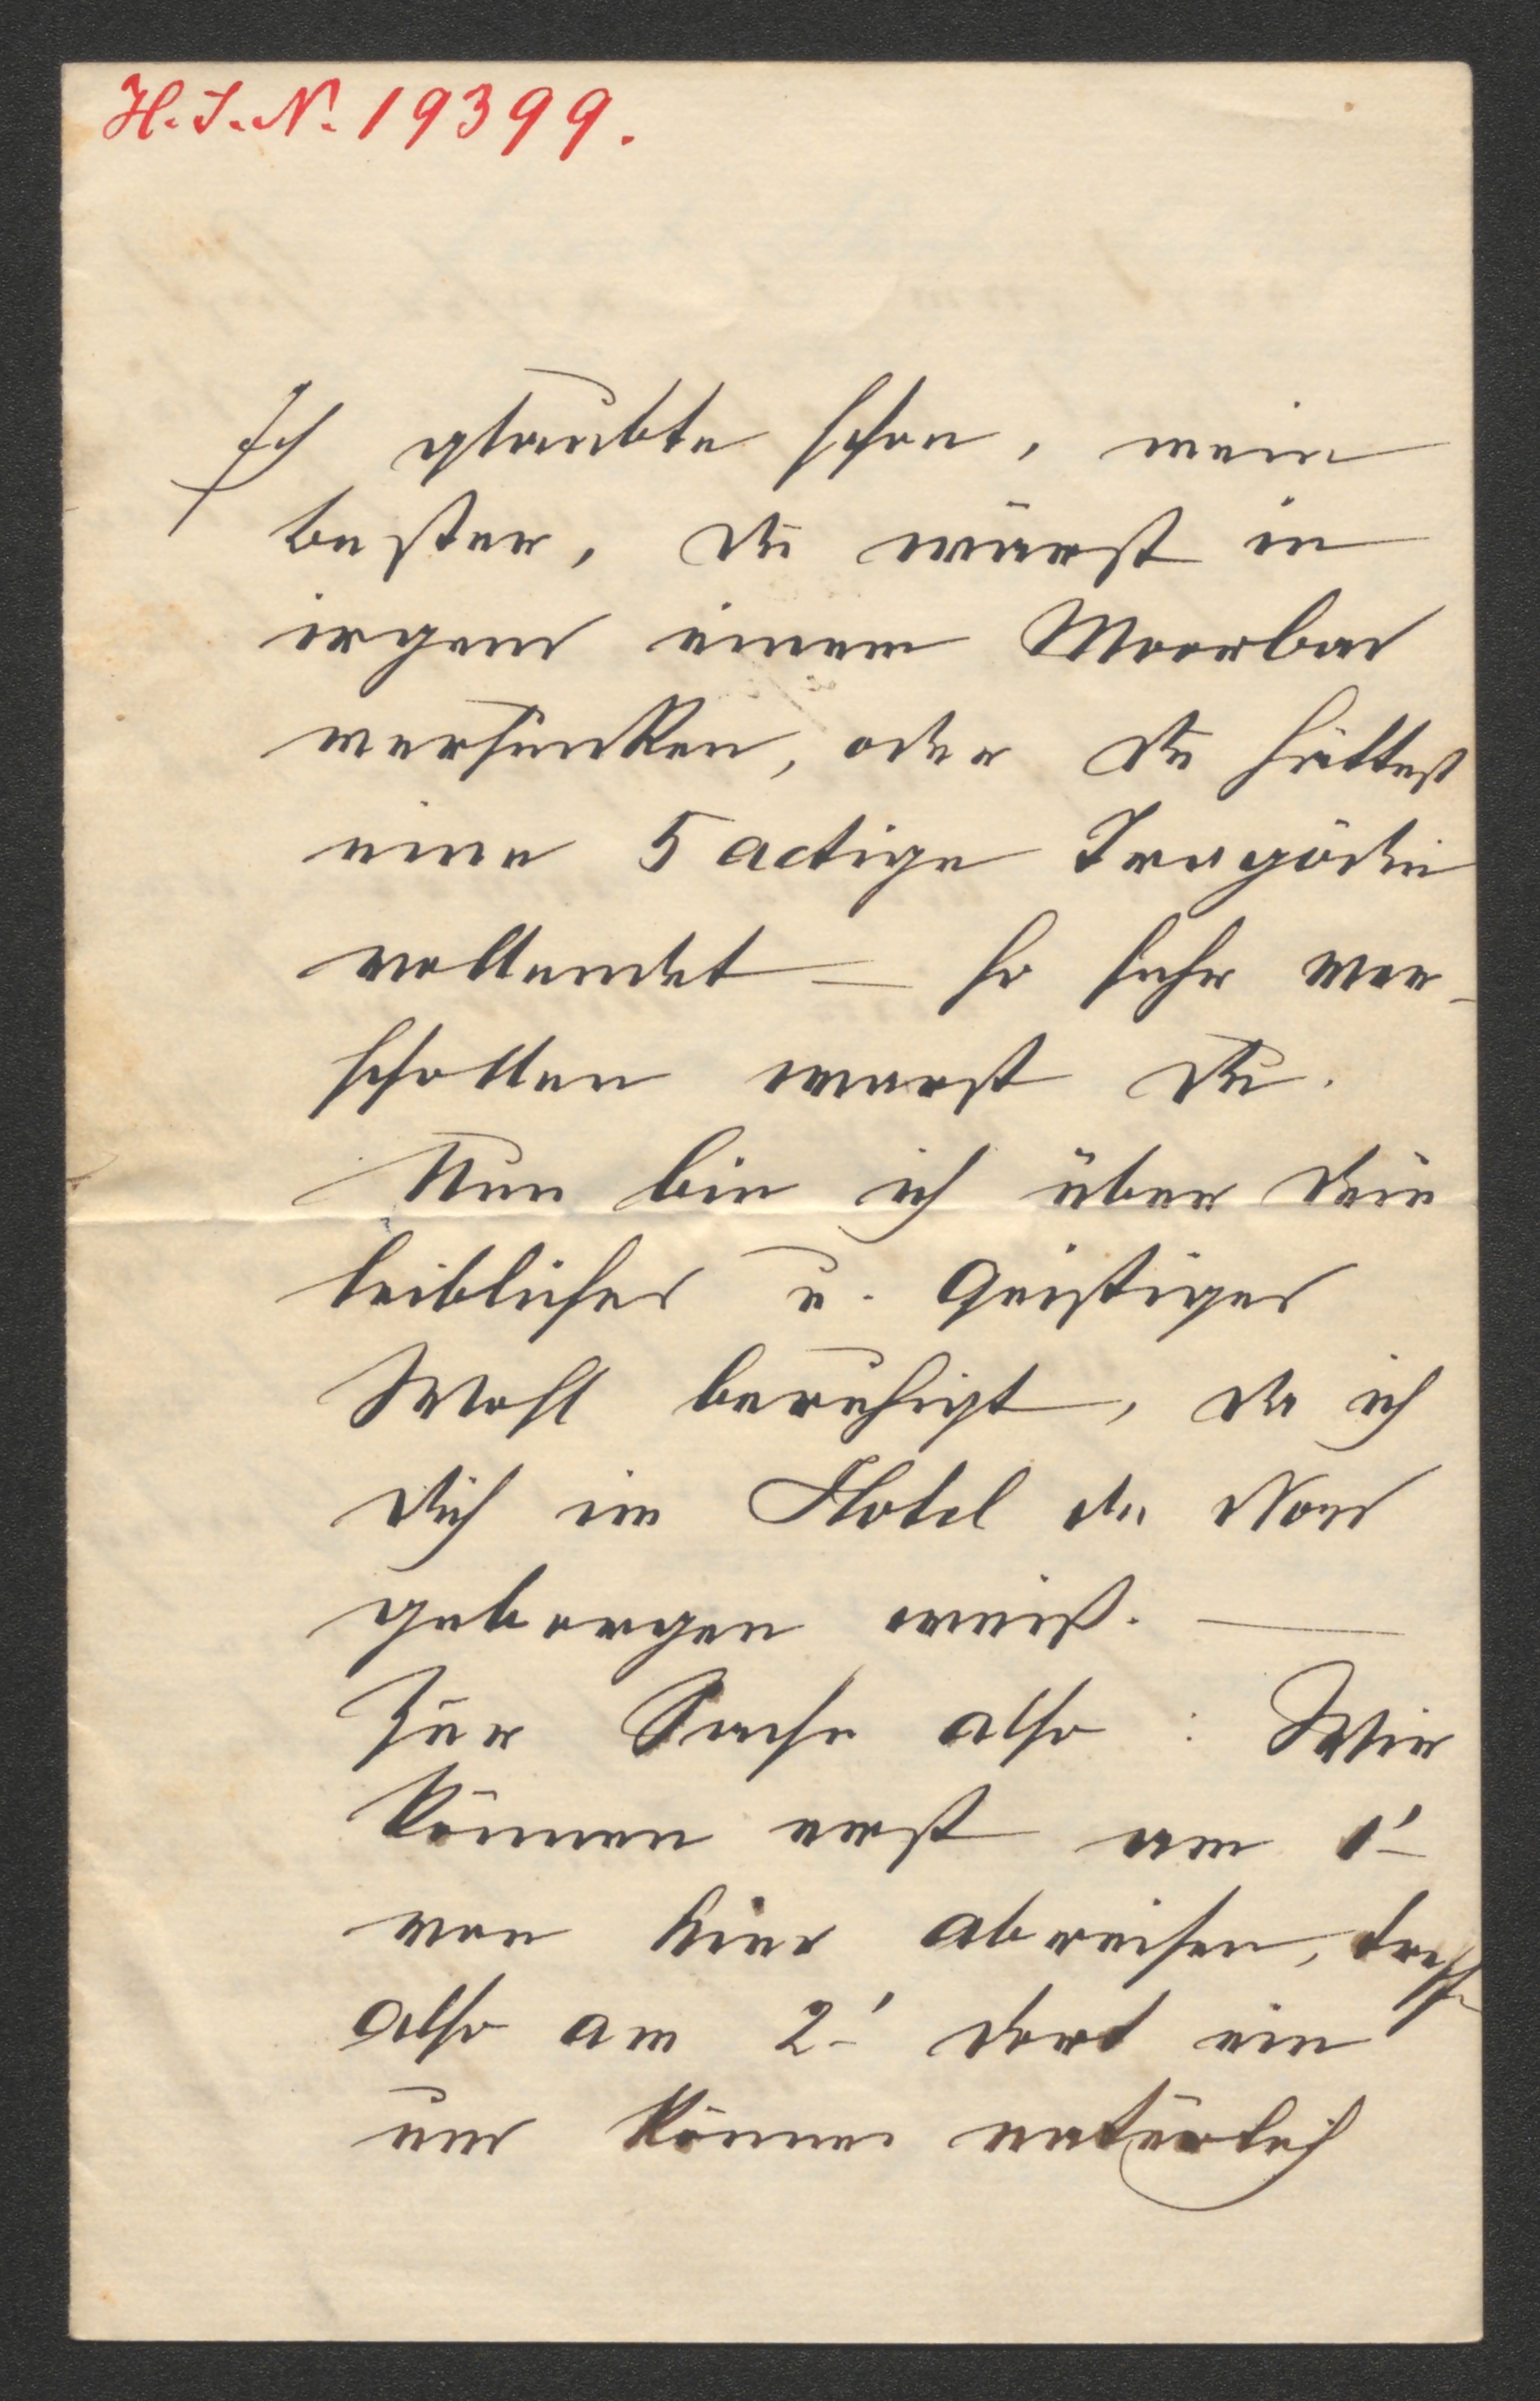 H. I. N. 19399.
Ich glaubte schon, mein
bester, Du wärest in
irgend einem Moorbad
versunken, oder Du hättest
eine 5 actige Tragödie
vollendet – so sehr ver-
schollen warst Du.
Nun bin ich über Dein
leibliches u. Geistiges
Wohl beruhigt, da ich
Dich im Hotel du Nord
geborgen weiß. –
Zur Sache also: Wir
können erst am 1'
von hier abreisen, treffen
also am 2' dort ein
und können natürlich